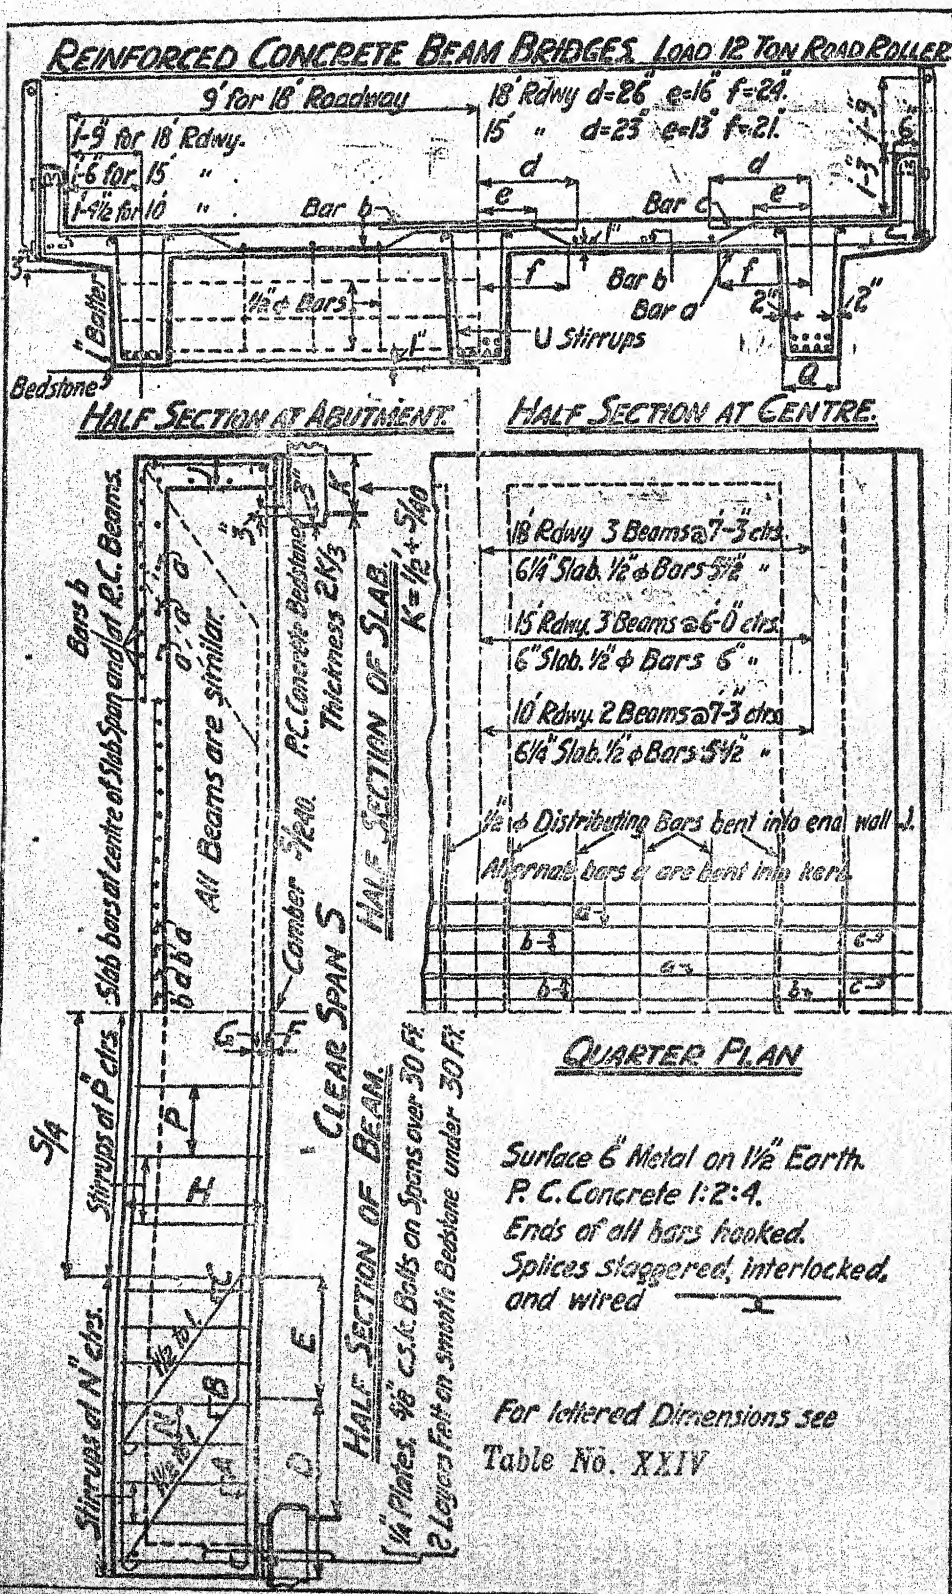 REINFORCED CONCRETE BEAM BRIDGES. LOAD 12 TON ROAD ROLLER
9' for 18' Roadway
18' Rdwy d=26" e=16" f=24".
15' " d=23" e=13" f=21".
1'-9" for 18' Rdwy.
1'-6" for 15' " .
1'-4½" for 10' " .
1'-9"
6"
1'-3"
d
d
e
e
Bar b
Bar c
1"
f
f
Bar b
Bar a
3"
1" Batter
½" φ Bars
1"
U Stirrups
2"
2"
Bedstone
a
HALF SECTION AT ABUTMENT.
HALF SECTION AT CENTRE.
Bars b
Slab bars at centre of Slab Span and at R.C. Beams.
J
a' a' a'
All Beams are similar.
b a b a
3"
3"
K
P.C. Concrete Bedstone
Thickness 2K/3
K = 1/2' + S/40
HALF SECTION OF SLAB.
Camber S/240.
CLEAR SPAN S
18' Rdwy 3 Beams @ 7'-3" ctrs.
6¼" Slab. ½" φ Bars 5½" "
15' Rdwy. 3 Beams @ 6'-0" ctrs.
6" Slab. ½" φ Bars 6" "
10' Rdwy. 2 Beams @ 7'-3" ctrs
6¼" Slab. ½" φ Bars 5½" "
½" φ Distributing Bars bent into end wall J.
Alternate bars a are bent into kerb.
a
b
c
a
b
b
c
QUARTER PLAN
S/4
Stirrups at P" ctrs.
P
H
Stirrups at N" ctrs.
C
E
1½ to 1.
B
N
A
D
HALF SECTION OF BEAM.
¼" Plates. ⅝" c.s.k. Bolts on Spans over 30 Ft.
2 Layers Felt on Smooth Bedstone under 30 Ft.
Surface 6" Metal on 1½" Earth.
P. C. Concrete 1:2:4.
Ends of all bars hooked.
Splices staggered, interlocked,
and wired
For lettered Dimensions see
Table No. XXIV